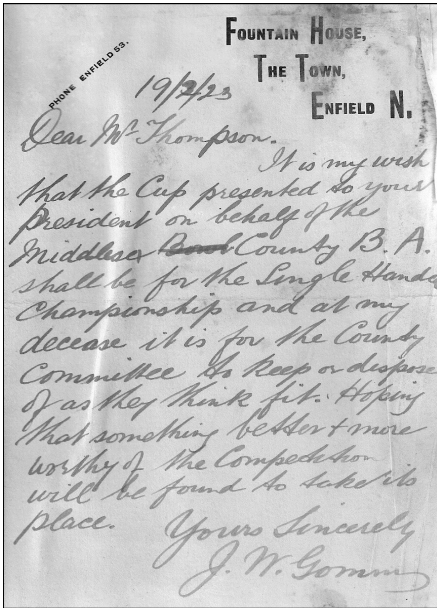 PHONE ENFIELD 53.
FOUNTAIN HOUSE,
THE TOWN,
ENFIELD N.
19/2/23
Dear Mr Thompson.
It is my wish
that the Cup presented to your
President on behalf of the
Middlesex County B. A.
shall be for the Single Handed
Championship and at my
decease it is for the County
Committee to keep or dispose
of as they think fit. Hoping
that something better & more
worthy of the Competition
will be found to take its
place.
Yours Sincerely
J. W. Gomm